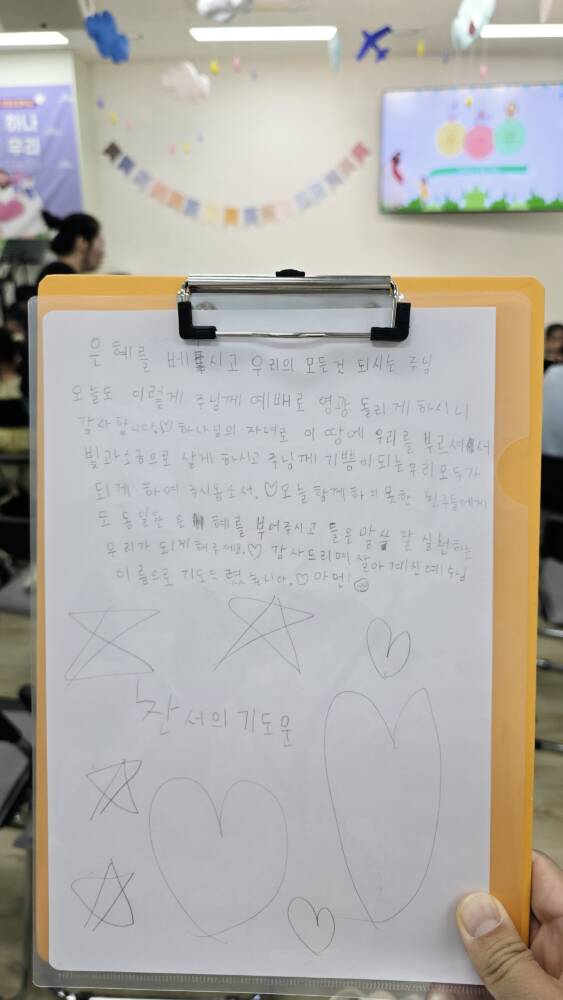 하나
우리
은혜를 베푸시고 우리의 모든것 되시는 주님
오늘도 이렇게 주님께 예배로 영광 돌리게하시니
감사합니다.♡하나님의 자녀로 이 땅에 우리를 부르셔서
빛과소금으로 살게 하시고 주님께 기쁨이되는우리모두가
되게 하여 주시옵소서.♡오늘 함께 하지 못한 친구들에게
도 동일한 은혜를 부어주시고 들은 말씀 잘 실천하는
우리가 되게해주세요.♡ 감사드리며 살아계신예수님
이름으로 기도드렸습니다.♡아멘!
찬서의기도문